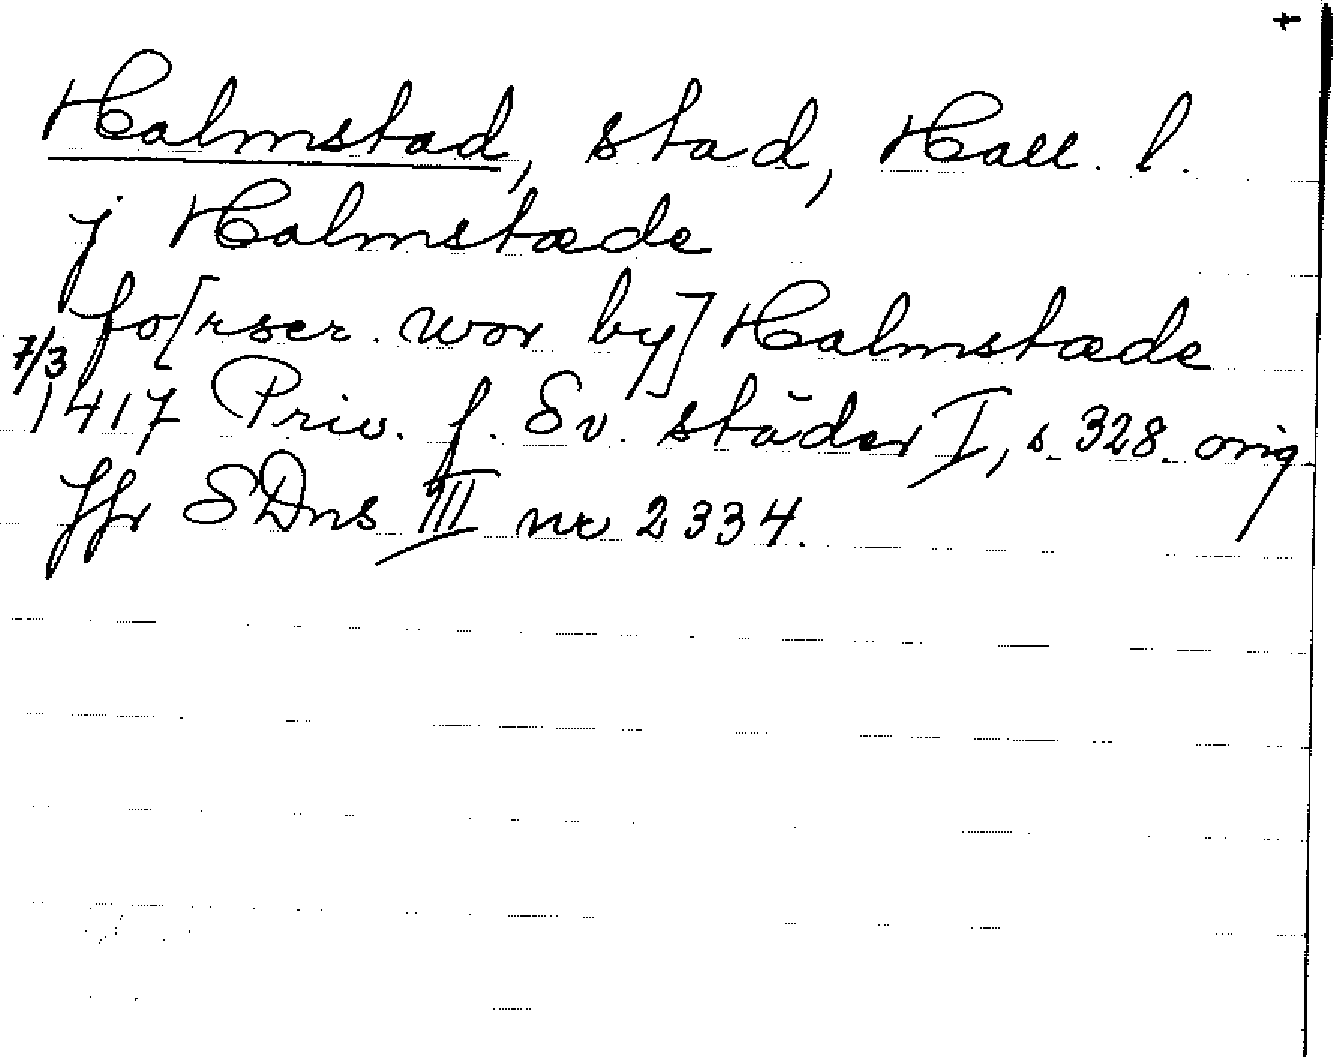 +
Halmstad, stad, Hall. l.
j Halmstæde
fo[rser. wor by] Halmstæde
7/3 1417 Priv. f. Sv. städer I, s. 328. orig
Jfr SDns III nr 2334.